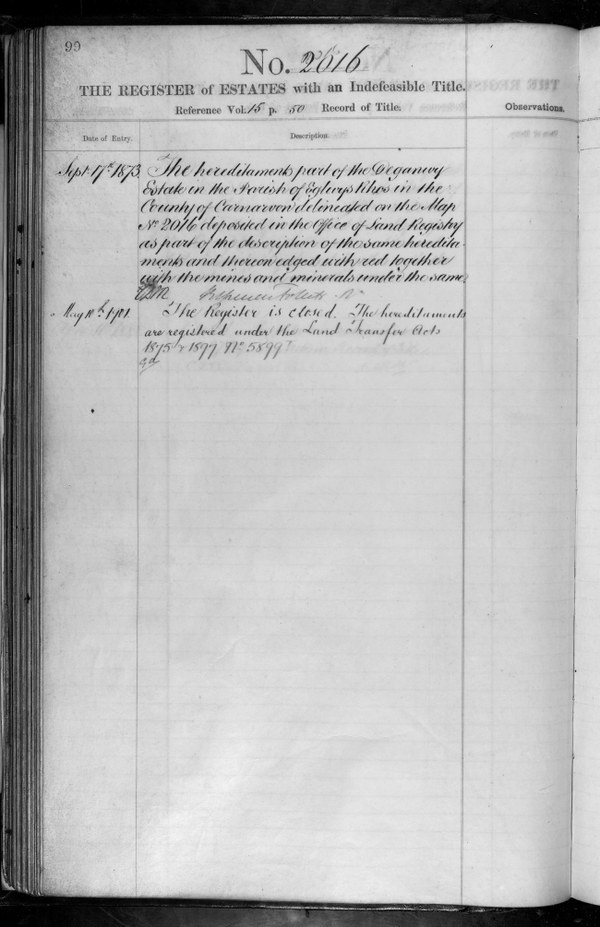 99
No. 2016
THE REGISTER of ESTATES with an Indefeasible Title.
Reference Vol. 15 p. 50 Record of Title.
Observations.
Date of Entry.
Description.
Sept. 17th 1873. The hereditaments part of the Deganwy
Estate in the Parish of Eglwys Rhos in the
County of Carnarvon delineated on the Map
No 2016 deposited in the Office of Land Registry
as part of the description of the same heredita-
ments and thereon edged with red together
with the mines and minerals under the same.
May 10th 1901 The Register is closed. The hereditaments
are registered under the Land Transfer Acts
1875 & 1897 No 5899